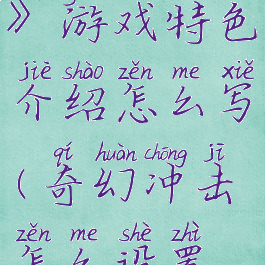 》游戏特色
jiè shào zěn me xiě
介绍怎么写
qí huàn chōng jī
(奇幻冲击
zěn me shè zhì
怎么设置